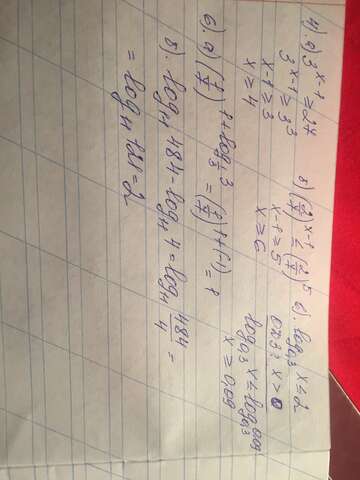 4) а) 3^(x-1) ≥ 27
3^(x-1) ≥ 3^3
x-1 ≥ 3
x ≥ 4
б) (2/7)^(x-1) ≤ (2/7)^5
x-1 ≥ 5
x ≥ 6
в). log_0,3 x ≤ 2
ОДЗ: x > 0
log_0,3 x ≤ log_0,3 0,09
x ≥ 0,09
6). а) (2/7)^(1+log_(1/3) 3) = (2/7)^(1+(-1)) = 1
б). log_11 484 - log_11 4 = log_11 484/4 =
= log_11 121 = 2